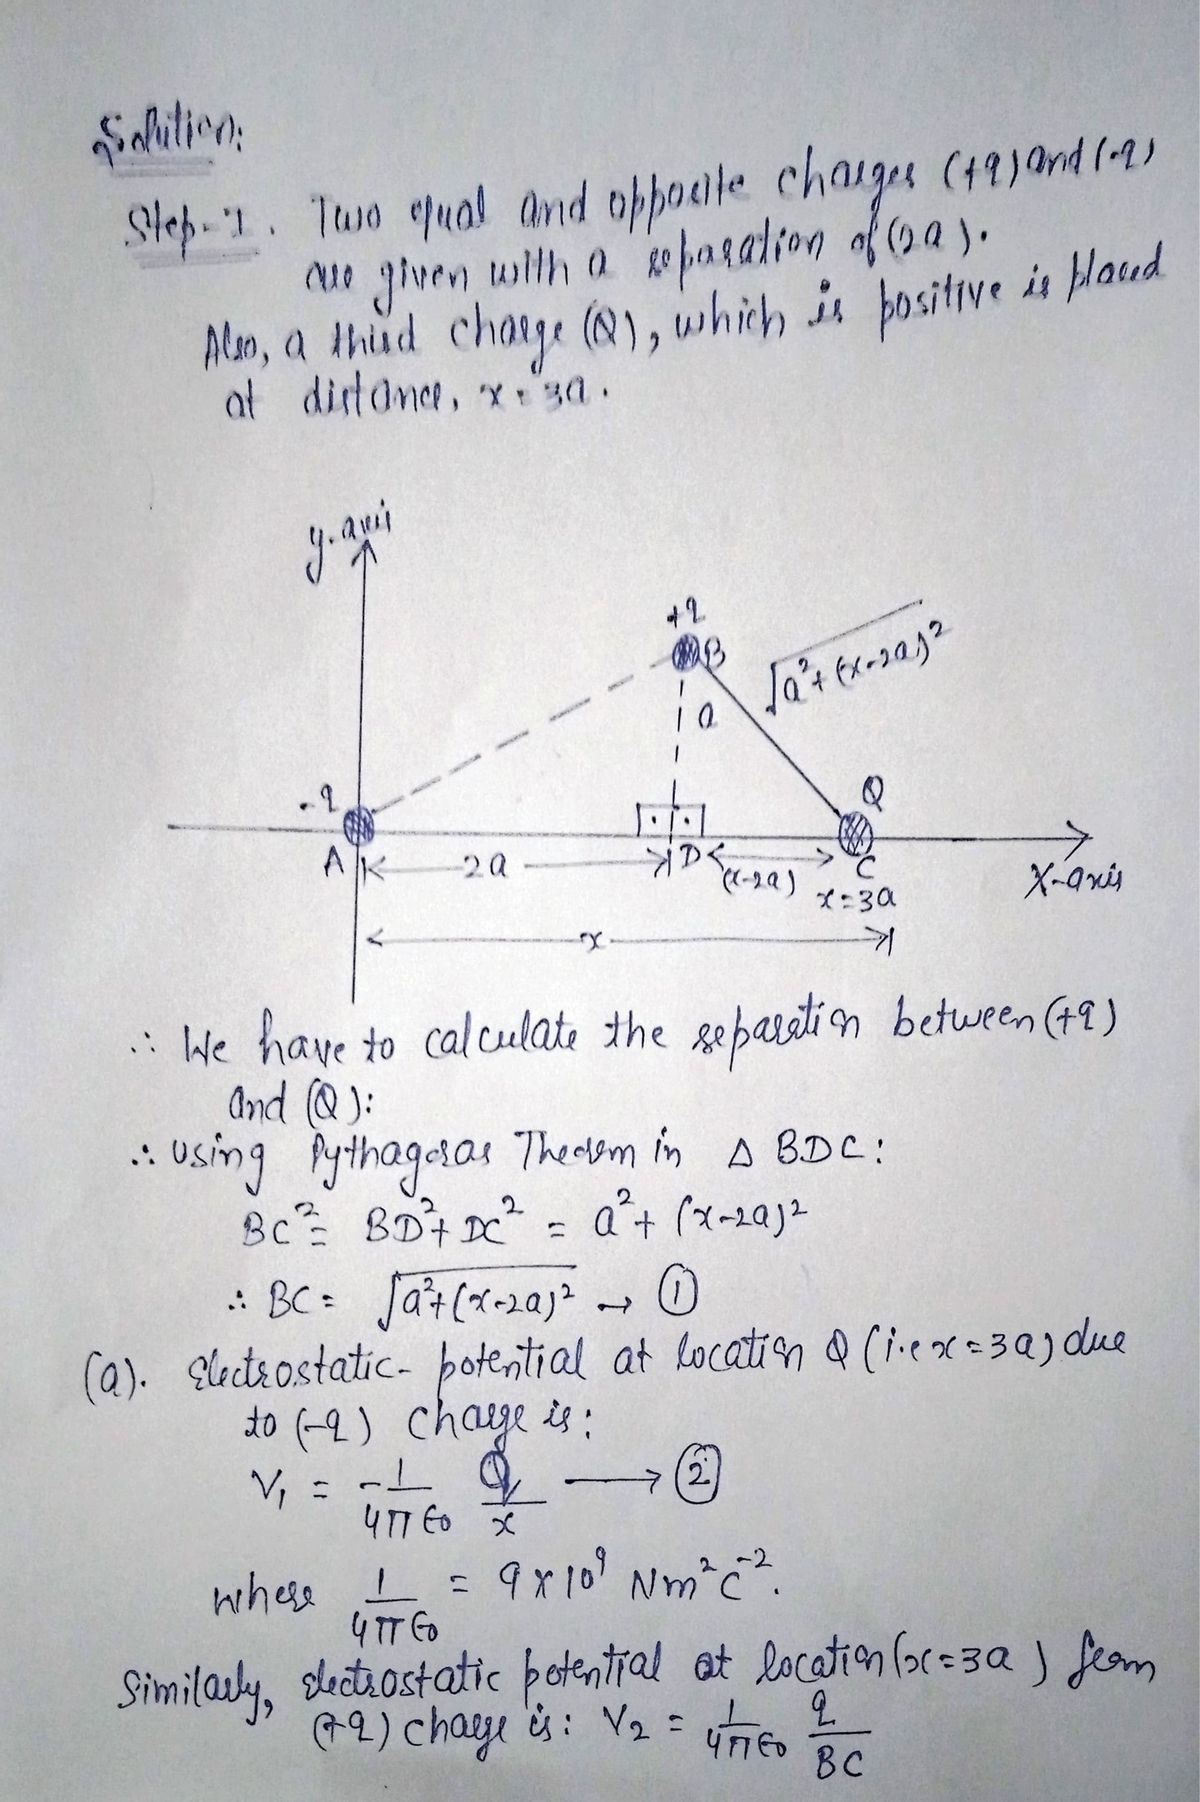 Solution:
Step-1. Two equal and opposite charges (+q) and (-q)
are given with a separation of (2a).
Also, a third charge (Q), which is positive is placed
at distance, x = 3a.
y-axis
+q
B
√a²+(x-2a)²
a
-q
Q
A
2a
D
(x-2a)
C
x=3a
X-axis
x
∴ We have to calculate the separation between (+q)
and (Q):
∴ Using Pythagoras Theorem in Δ BDC:
BC² = BD² + DC² = a² + (x-2a)²
∴ BC = √a²+(x-2a)² → ①
(a). Electrostatic-potential at location Q (i.e x=3a) due
to (-q) charge is:
V₁ = -1/4πϵ₀ q/x → ②
where 1/4πϵ₀ = 9×10⁹ Nm²C⁻².
Similarly, electrostatic potential at location (x=3a) from
(+q) charge is: V₂ = 1/4πϵ₀ q/BC